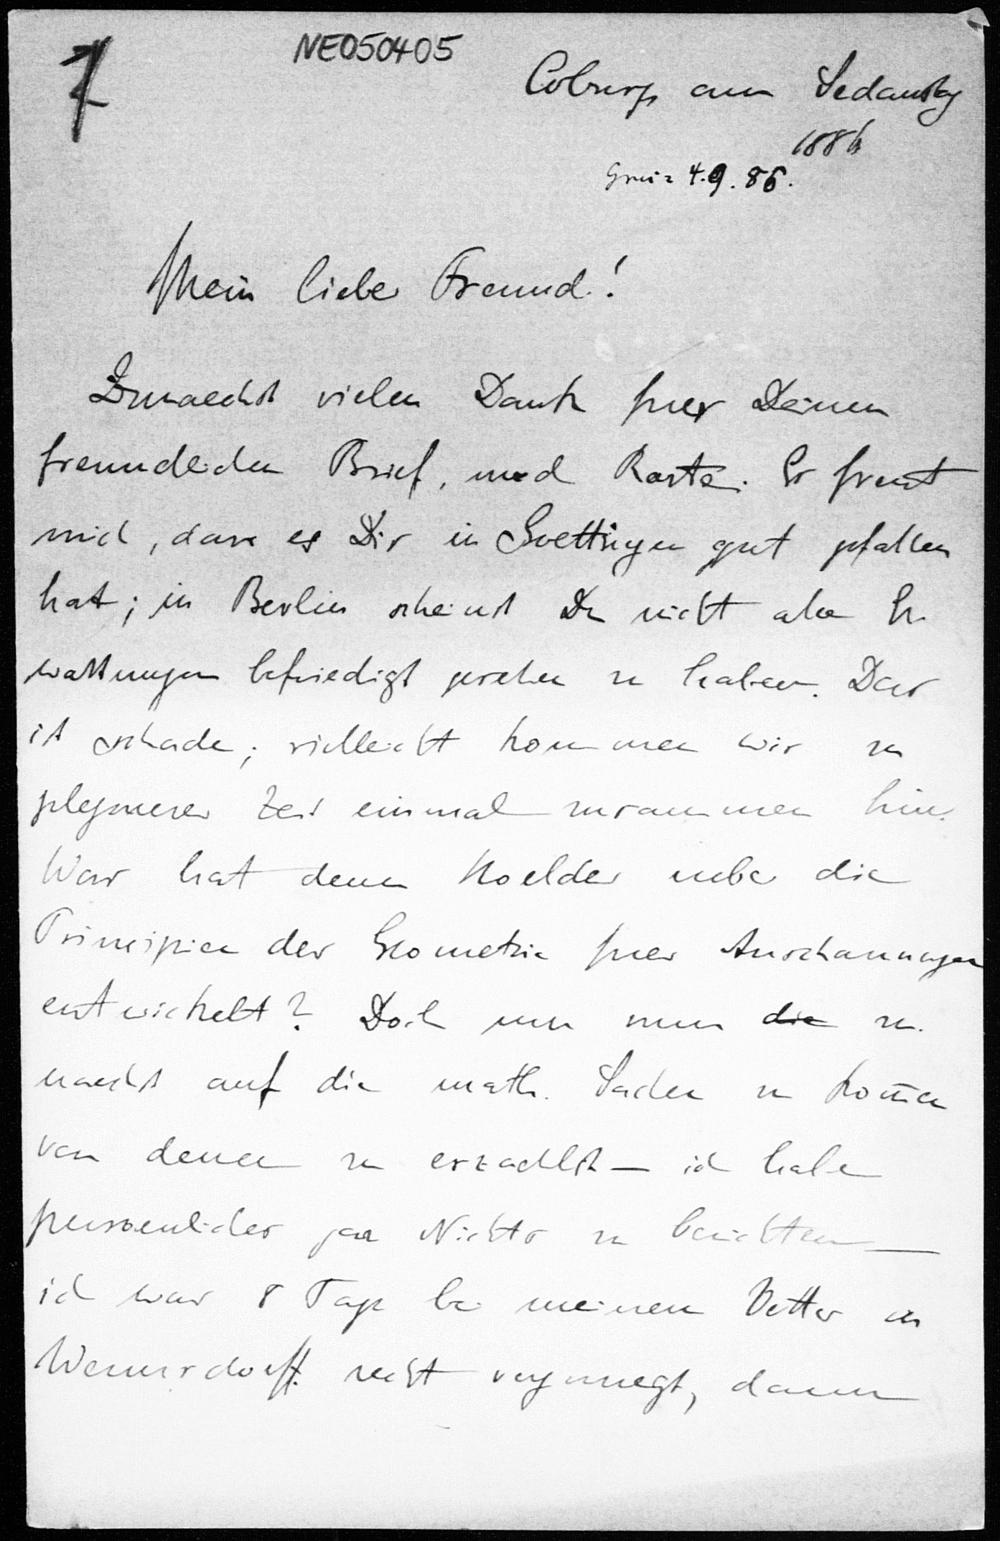 7
NE050405
Coburg am Sedanstag
1886
Greiz 4.9.86.
Mein lieber Freund!
Zunaechst vielen Dank fuer Deinen
freundlichen Brief, und Karte. Es freut
mich, dass es Dir in Goettingen gut gefallen
hat; in Berlin scheinst Du nicht alle Er-
wartungen befriedigt gesehen zu haben. Das
ist schade; vielleicht kommen wir zu
gelegener Zeit einmal zusammen hin.
Was hat denn Hoelder ueber die
Principien der Geometrie fuer Anschauungen
entwickelt? Doch um nun die zu-
naechst auf die math. Sachen zu kom̄en
von denen Du erzaehlst — ich habe
persoenliches gar Nichts zu berichten —
ich war 8 Tage bei meinem Vetter in
recht vergnuegt, dann